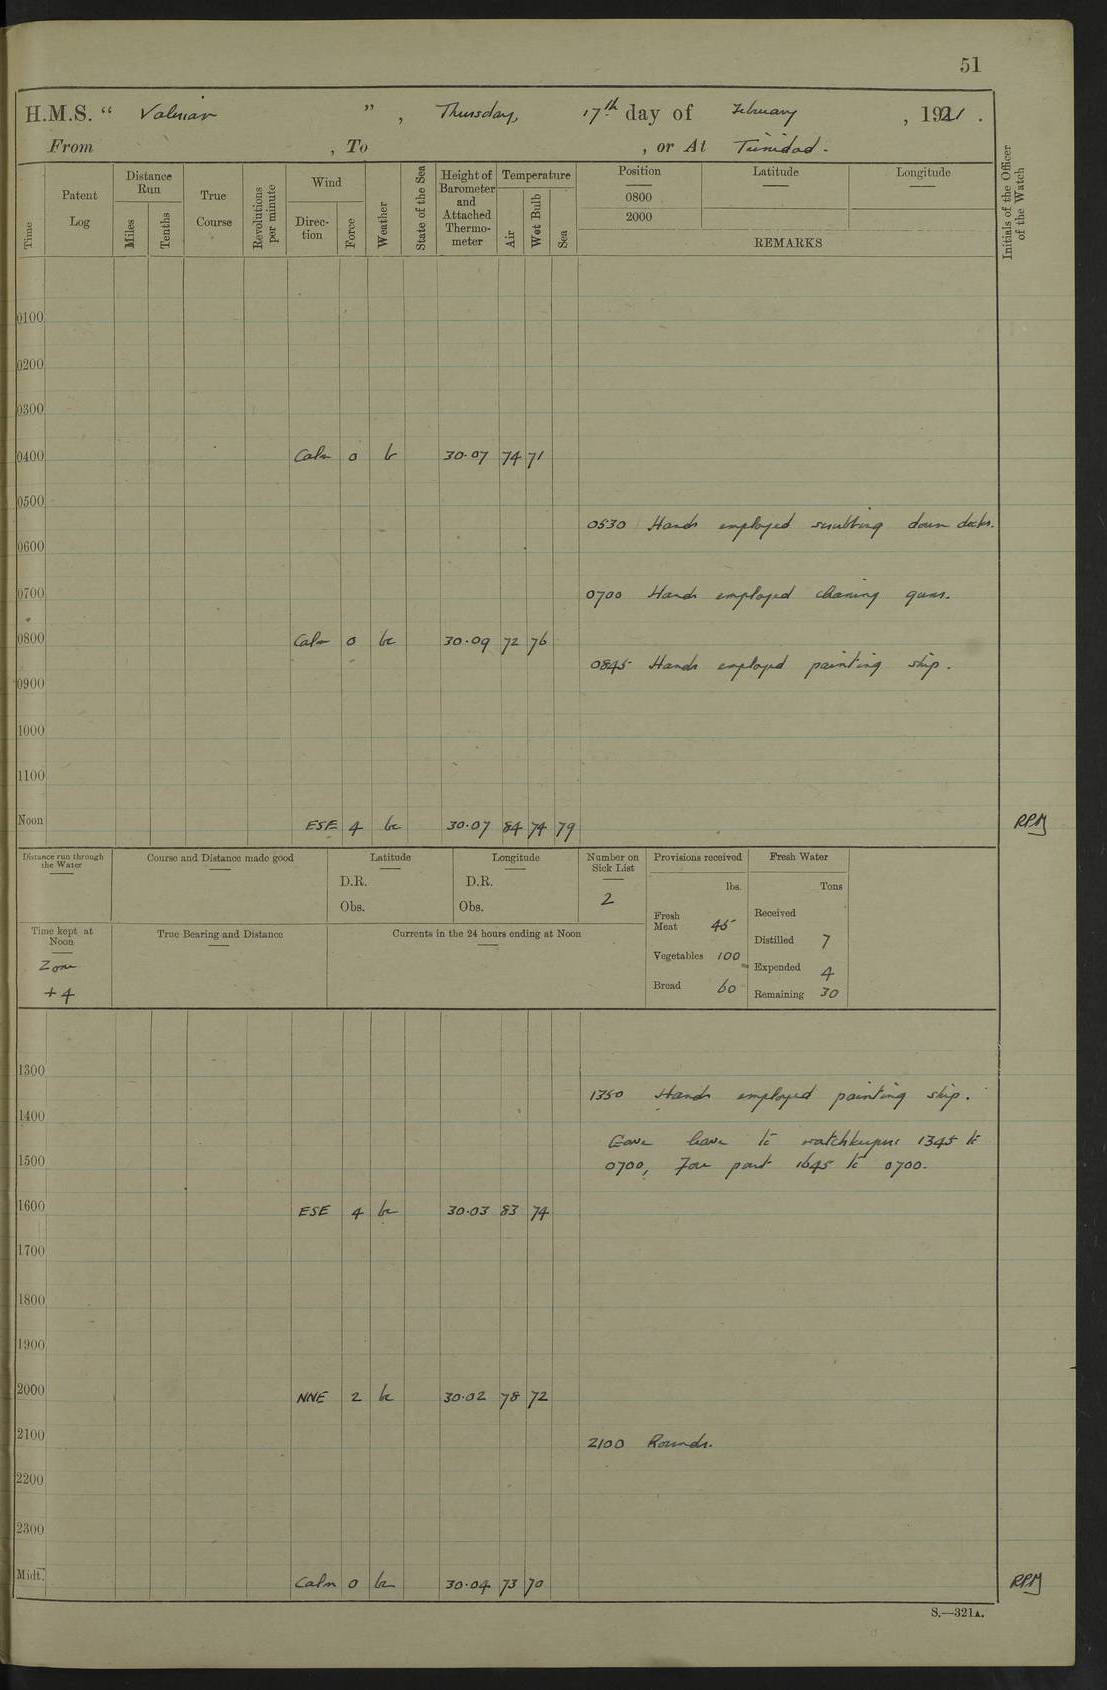 51
H.M.S. “ Valerian ”, Thursday, 17th day of February, 1921.
From , To , or At Trinidad.
Time
Patent Log
Distance Run
Miles
Tenths
True Course
Revolutions per minute
Wind
Direction
Force
Weather
State of the Sea
Height of Barometer and Attached Thermometer
Temperature
Air
Wet Bulb
Sea
Position
0800
2000
Latitude
Longitude
REMARKS
Initials of the Officer of the Watch
0100
0200
0300
0400 Calm 0 b 30.07 74 71
0500
0530 Hands employed scrubbing down decks.
0600
0700 Hands employed cleaning guns.
0700
0800 Calm 0 bc 30.09 72 76
0845 Hands employed painting ship.
0900
1000
1100
Noon ESE 4 bc 30.07 84 74 79 RPM
Distance run through the Water
Course and Distance made good
Latitude
D.R.
Obs.
Longitude
D.R.
Obs.
Number on Sick List
2
Provisions received
lbs.
Fresh Meat 45
Vegetables 100
Bread 60
Fresh Water
Tons
Received
Distilled 7
Expended 4
Remaining 30
Time kept at Noon
Zone
+4
True Bearing and Distance
Currents in the 24 hours ending at Noon
1300
1350 Hands employed painting ship.
1400
Gave leave to watchkeepers 1345 to
0700, For part 1645 to 0700.
1500
1600 ESE 4 bc 30.03 83 74
1700
1800
1900
2000 NNE 2 bc 30.02 78 72
2100
2100 Rounds.
2200
2300
Midt. Calm 0 bc 30.04 73 70 RPM
S.—321A.